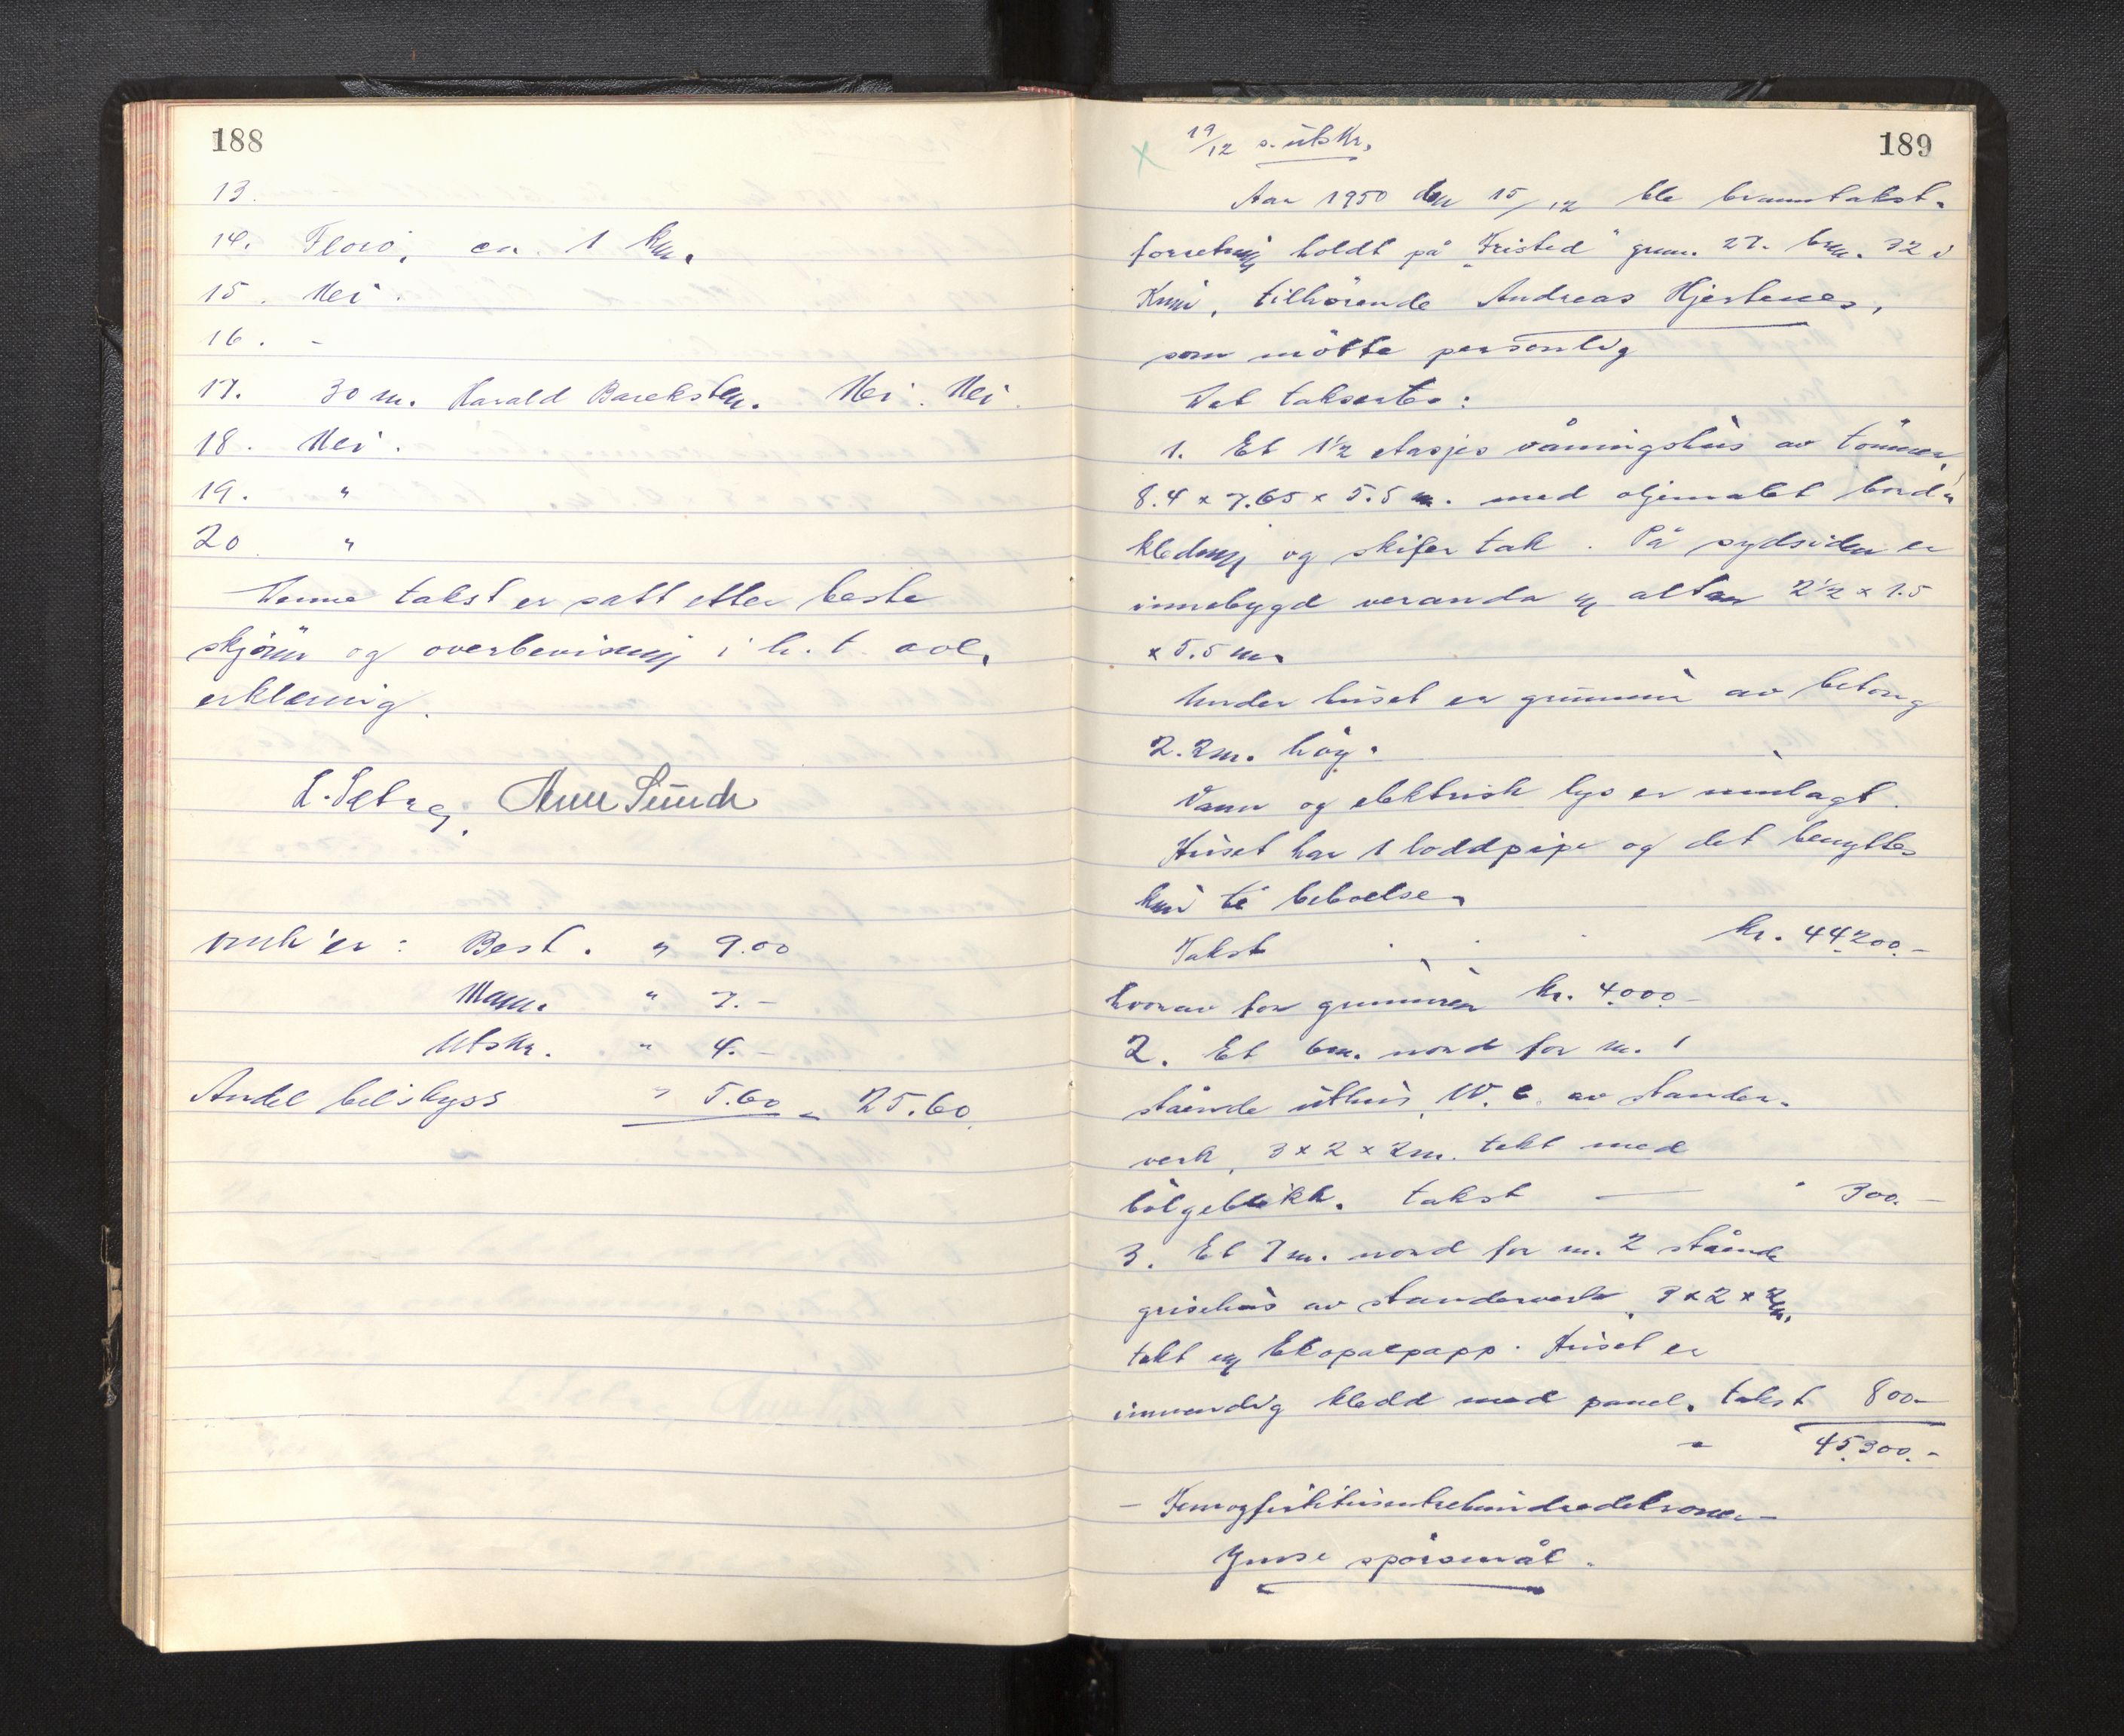 188
13. -
14. Florö, ca. 1 km.
15. Nei.
16. -
17. 30 m. Harald Bareksten. Nei. Nei.
18. Nei.
19. "
20. "
Denne takst er satt etter beste
skjönn og overbevisning i h. t. avl.
erklæring.
Arne Sunde
omk'er: Best. " 9.00
Mann. " 7.-
Utskr. " 4.-
Andel bilskyss " 5.60 = 25.60
19/12 s. utskr.
189
Aar 1950 den 15/12 ble branntakst-
forretning holdt på "Fristed" grnn. 27. brn. 32 i
Kinn, tilhörende Andreas Hjertenes,
som mötte personlig
Det takseertes:
1. Et 1½ etasjes våningshus av tömmer,
8.4 x 7.65 x 5.5 m. med oljemalet bord-
kledning og skifer tak. På sydsiden er
innebygd veranda og altan 2½ x 1.5
x 5.5 m.
Under huset er grunnmur av betong
2.2 m. höy.
Vann og elektrisk lys er innlagt.
Huset har 1 loddpipe og det benyttes
kun til beboelse.
Takst kr. 44.200.-
hvorav for grunnmuren kr. 4.000.-
2. Et 6 m. nord for nr. 1
stående uthus, W.C. av stender-
verk, 3 x 2 x 2 m. tekt med
bölgeblikk. takst — " 300.-
3. Et 7 m. nord for nr. 2 stående
grisehus av stenderverk, 3 x 2 x 2 m.
tekt og Ekopalpapp. Huset er
innvendig kledd med panel. takst 800.-
" 45.300.-
- Femogförtitusentrehundredekroner -
Ymse spörsmål.